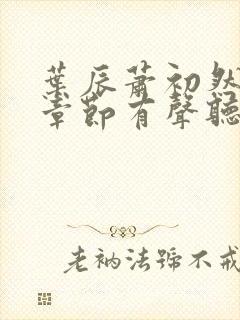 葉辰蕭初然
章節有聲聽
老衲法號不戒